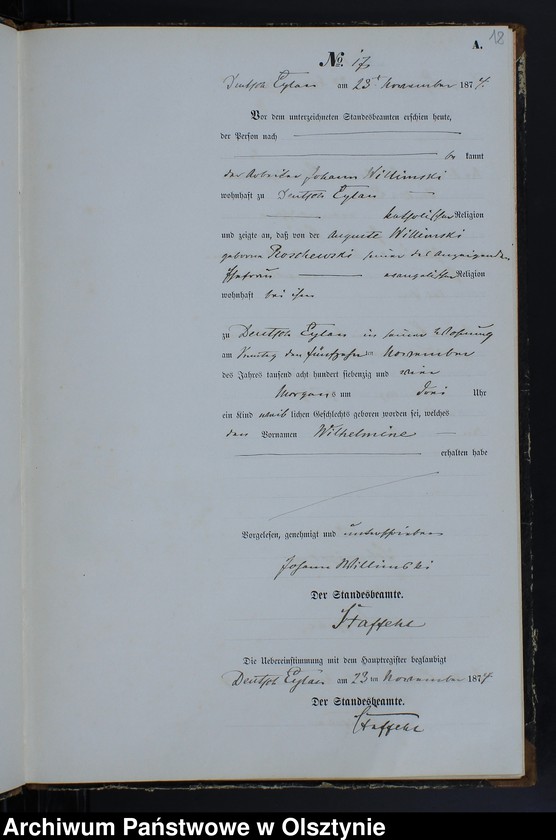 18
A.
No. 17
Deutsch Eylau am 23t November 1874.
Vor dem unterzeichneten Standesbeamten erschien heute,
der Person nach
be kannt
der Arbeiter Johann Willimski
wohnhaft zu Deutsch Eylau
katholischer Religion
und zeigte an, daß von der Auguste Willimski
geborne Roschewski seiner des Anzeigenden
Ehefrau evangelischer Religion
wohnhaft bei ihm
zu Deutsch Eylau in seiner Wohnung
am den fünfzehn ten November
des Jahres tausend acht hundert siebenzig und vier
Morgens um drei Uhr
ein Kind weib lichen Geschlechts geboren worden sei, welches
den Vornamen Wilhelmine
erhalten habe
Vorgelesen, genehmigt und unterschrieben
Johann Willimski
Der Standesbeamte.
Staffehl
Die Uebereinstimmung mit dem Hauptregister beglaubigt
Deutsch Eylau am 23 ten November 1874
Der Standesbeamte.
Staffehl
Archiwum Państwowe w Olsztynie